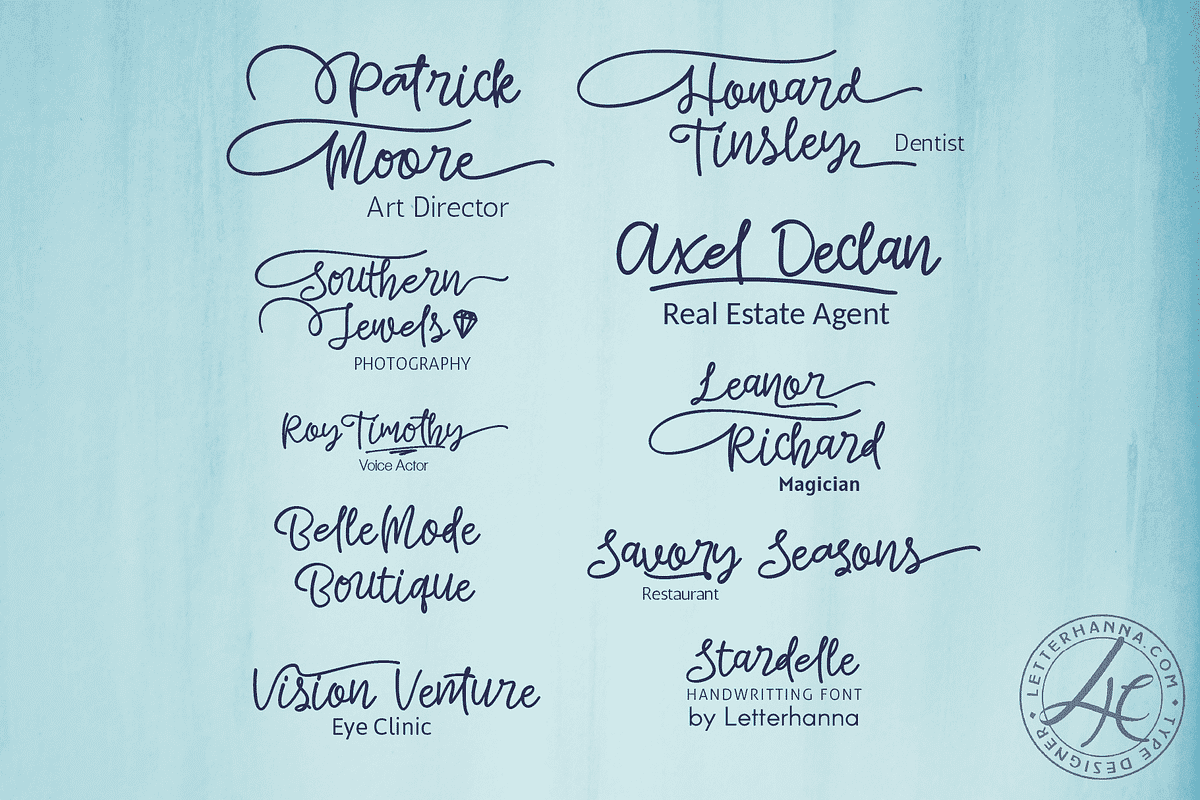 Patrick
Moore
Art Director
Southern
Jewels
PHOTOGRAPHY
Roy Timothy
Voice Actor
BelleMode
Boutique
Vision Venture
Eye Clinic
Howard
Tinsley
Dentist
Axel Declan
Real Estate Agent
Leanor
Richard
Magician
Savory Seasons
Restaurant
Stardelle
HANDWRITTING FONT
by Letterhanna
LETTERHANNA.COM
TYPE DESIGNER
LH